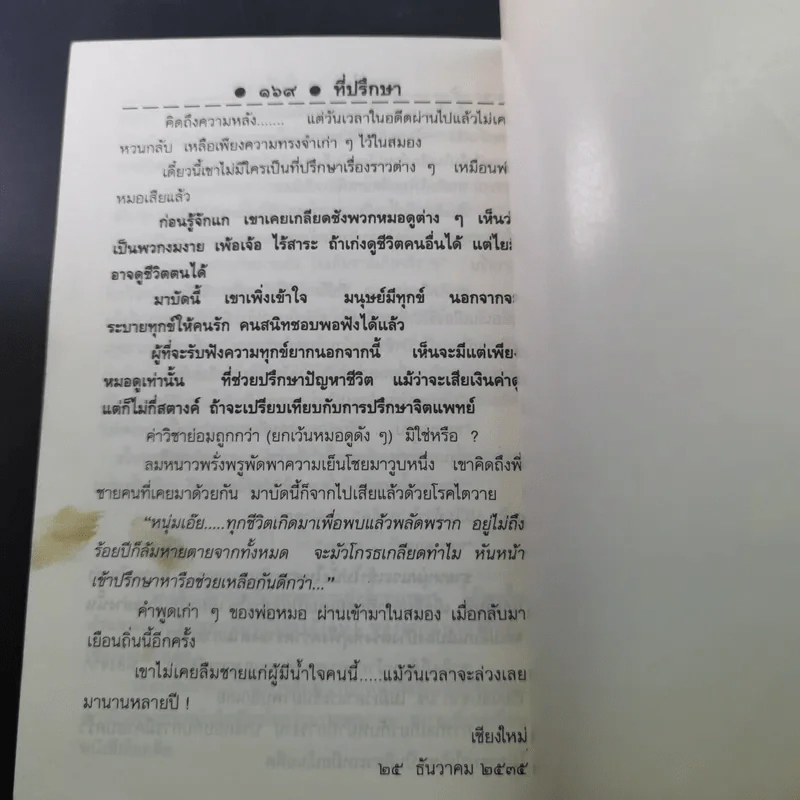 ● ๑๖๙ ● ที่ปรึกษา
คิดถึงความหลัง....... แต่วันเวลาในอดีตผ่านไปแล้วไม่เค
หวนกลับ เหลือเพียงความทรงจำเก่า ๆ ไว้ในสมอง
เดี๋ยวนี้เขาไม่มีใครเป็นที่ปรึกษาเรื่องราวต่าง ๆ เหมือนพ่
หมอเสียแล้ว
ก่อนรู้จักแก เขาเคยเกลียดชังพวกหมอดูต่าง ๆ เห็นว่
เป็นพวกงมงาย เพ้อเจ้อ ไร้สาระ ถ้าเก่งดูชีวิตคนอื่นได้ แต่ไยมิ
อาจดูชีวิตตนได้
มาบัดนี้ เขาเพิ่งเข้าใจ มนุษย์มีทุกข์ นอกจากจะ
ระบายทุกข์ให้คนรัก คนสนิทชอบพอฟังได้แล้ว
ผู้ที่จะรับฟังความทุกข์ยากนอกจากนี้ เห็นจะมีแต่เพียง
หมอดูเท่านั้น ที่ช่วยปรึกษาปัญหาชีวิต แม้ว่าจะเสียเงินค่าดู
แต่ก็ไม่กี่สตางค์ ถ้าจะเปรียบเทียบกับการปรึกษาจิตแพทย์
ค่าวิชาย่อมถูกกว่า (ยกเว้นหมอดูดัง ๆ) มิใช่หรือ ?
ลมหนาวพรั่งพรูพัดพาความเย็นโชยมาวูบหนึ่ง เขาคิดถึงพี่
ชายคนที่เคยมาด้วยกัน มาบัดนี้ก็จากไปเสียแล้วด้วยโรคไตวาย
"หนุ่มเอ๊ย.....ทุกชีวิตเกิดมาเพื่อพบแล้วพลัดพราก อยู่ไม่ถึง
ร้อยปีก็ล้มหายตายจากทั้งหมด จะมัวโกรธเกลียดทำไม หันหน้า
เข้าปรึกษาหารือช่วยเหลือกันดีกว่า..."
คำพูดเก่า ๆ ของพ่อหมอ ผ่านเข้ามาในสมอง เมื่อกลับมา
เยือนถิ่นนี้อีกครั้ง
เขาไม่เคยลืมชายแก่ผู้มีน้ำใจคนนี้.....แม้วันเวลาจะล่วงเลย
มานานหลายปี !
เชียงใหม่
๒๕ ธันวาคม ๒๕๓๕